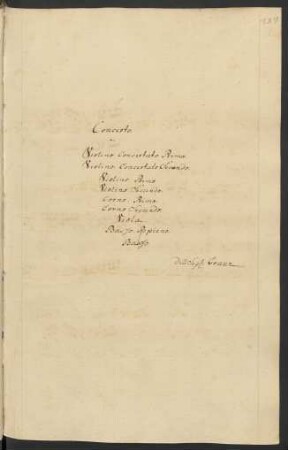 Concerto
a
Violino Concertato Primo
Violino Concertato Secondo
Violino Primo
Violino Secondo
Corno Primo
Corno Secondo
Viola
Basso Ripieno
Basso
Del Sigl Graun